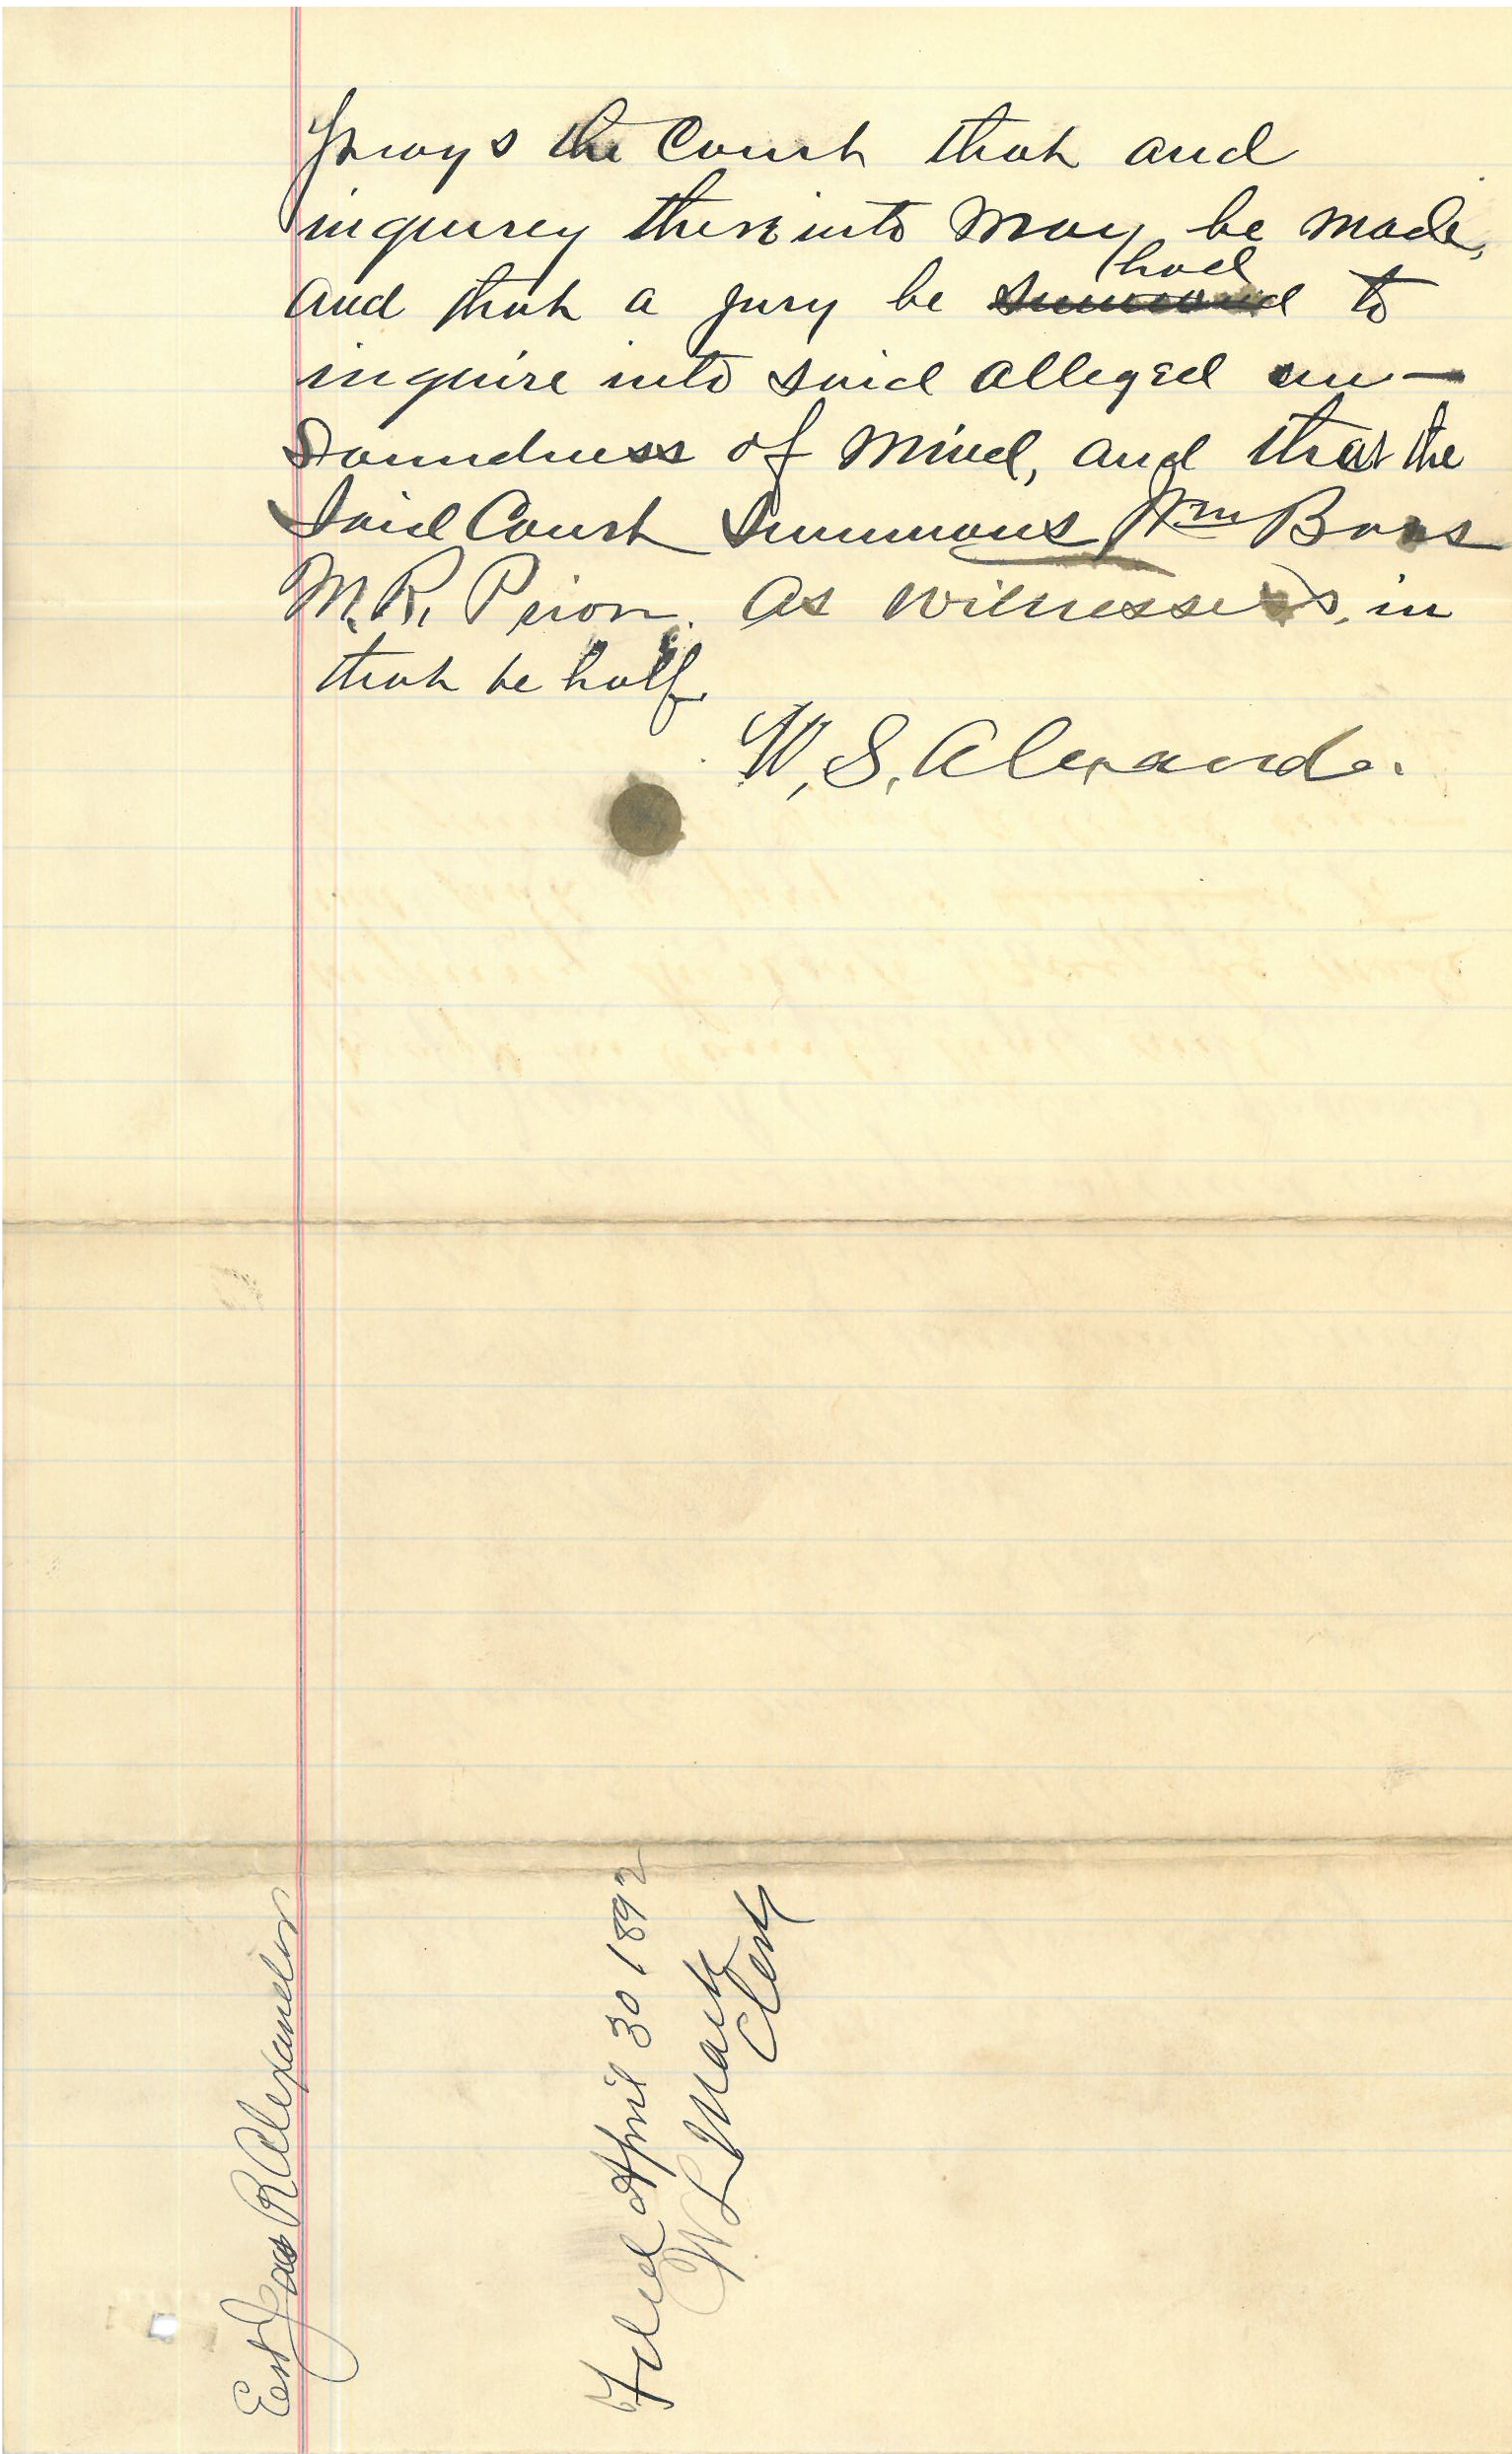 prays the Court that and
inquirey thereinto may be made,
and that a jury be had to
inquire into said alleged un-
soundness of mind, and that the
said Court summons Wm
M. R. as witnesses, in
that behalf.
W. S. Alexander.
Est Jas R Alexander
Filed April 30 1892
W L Clerk